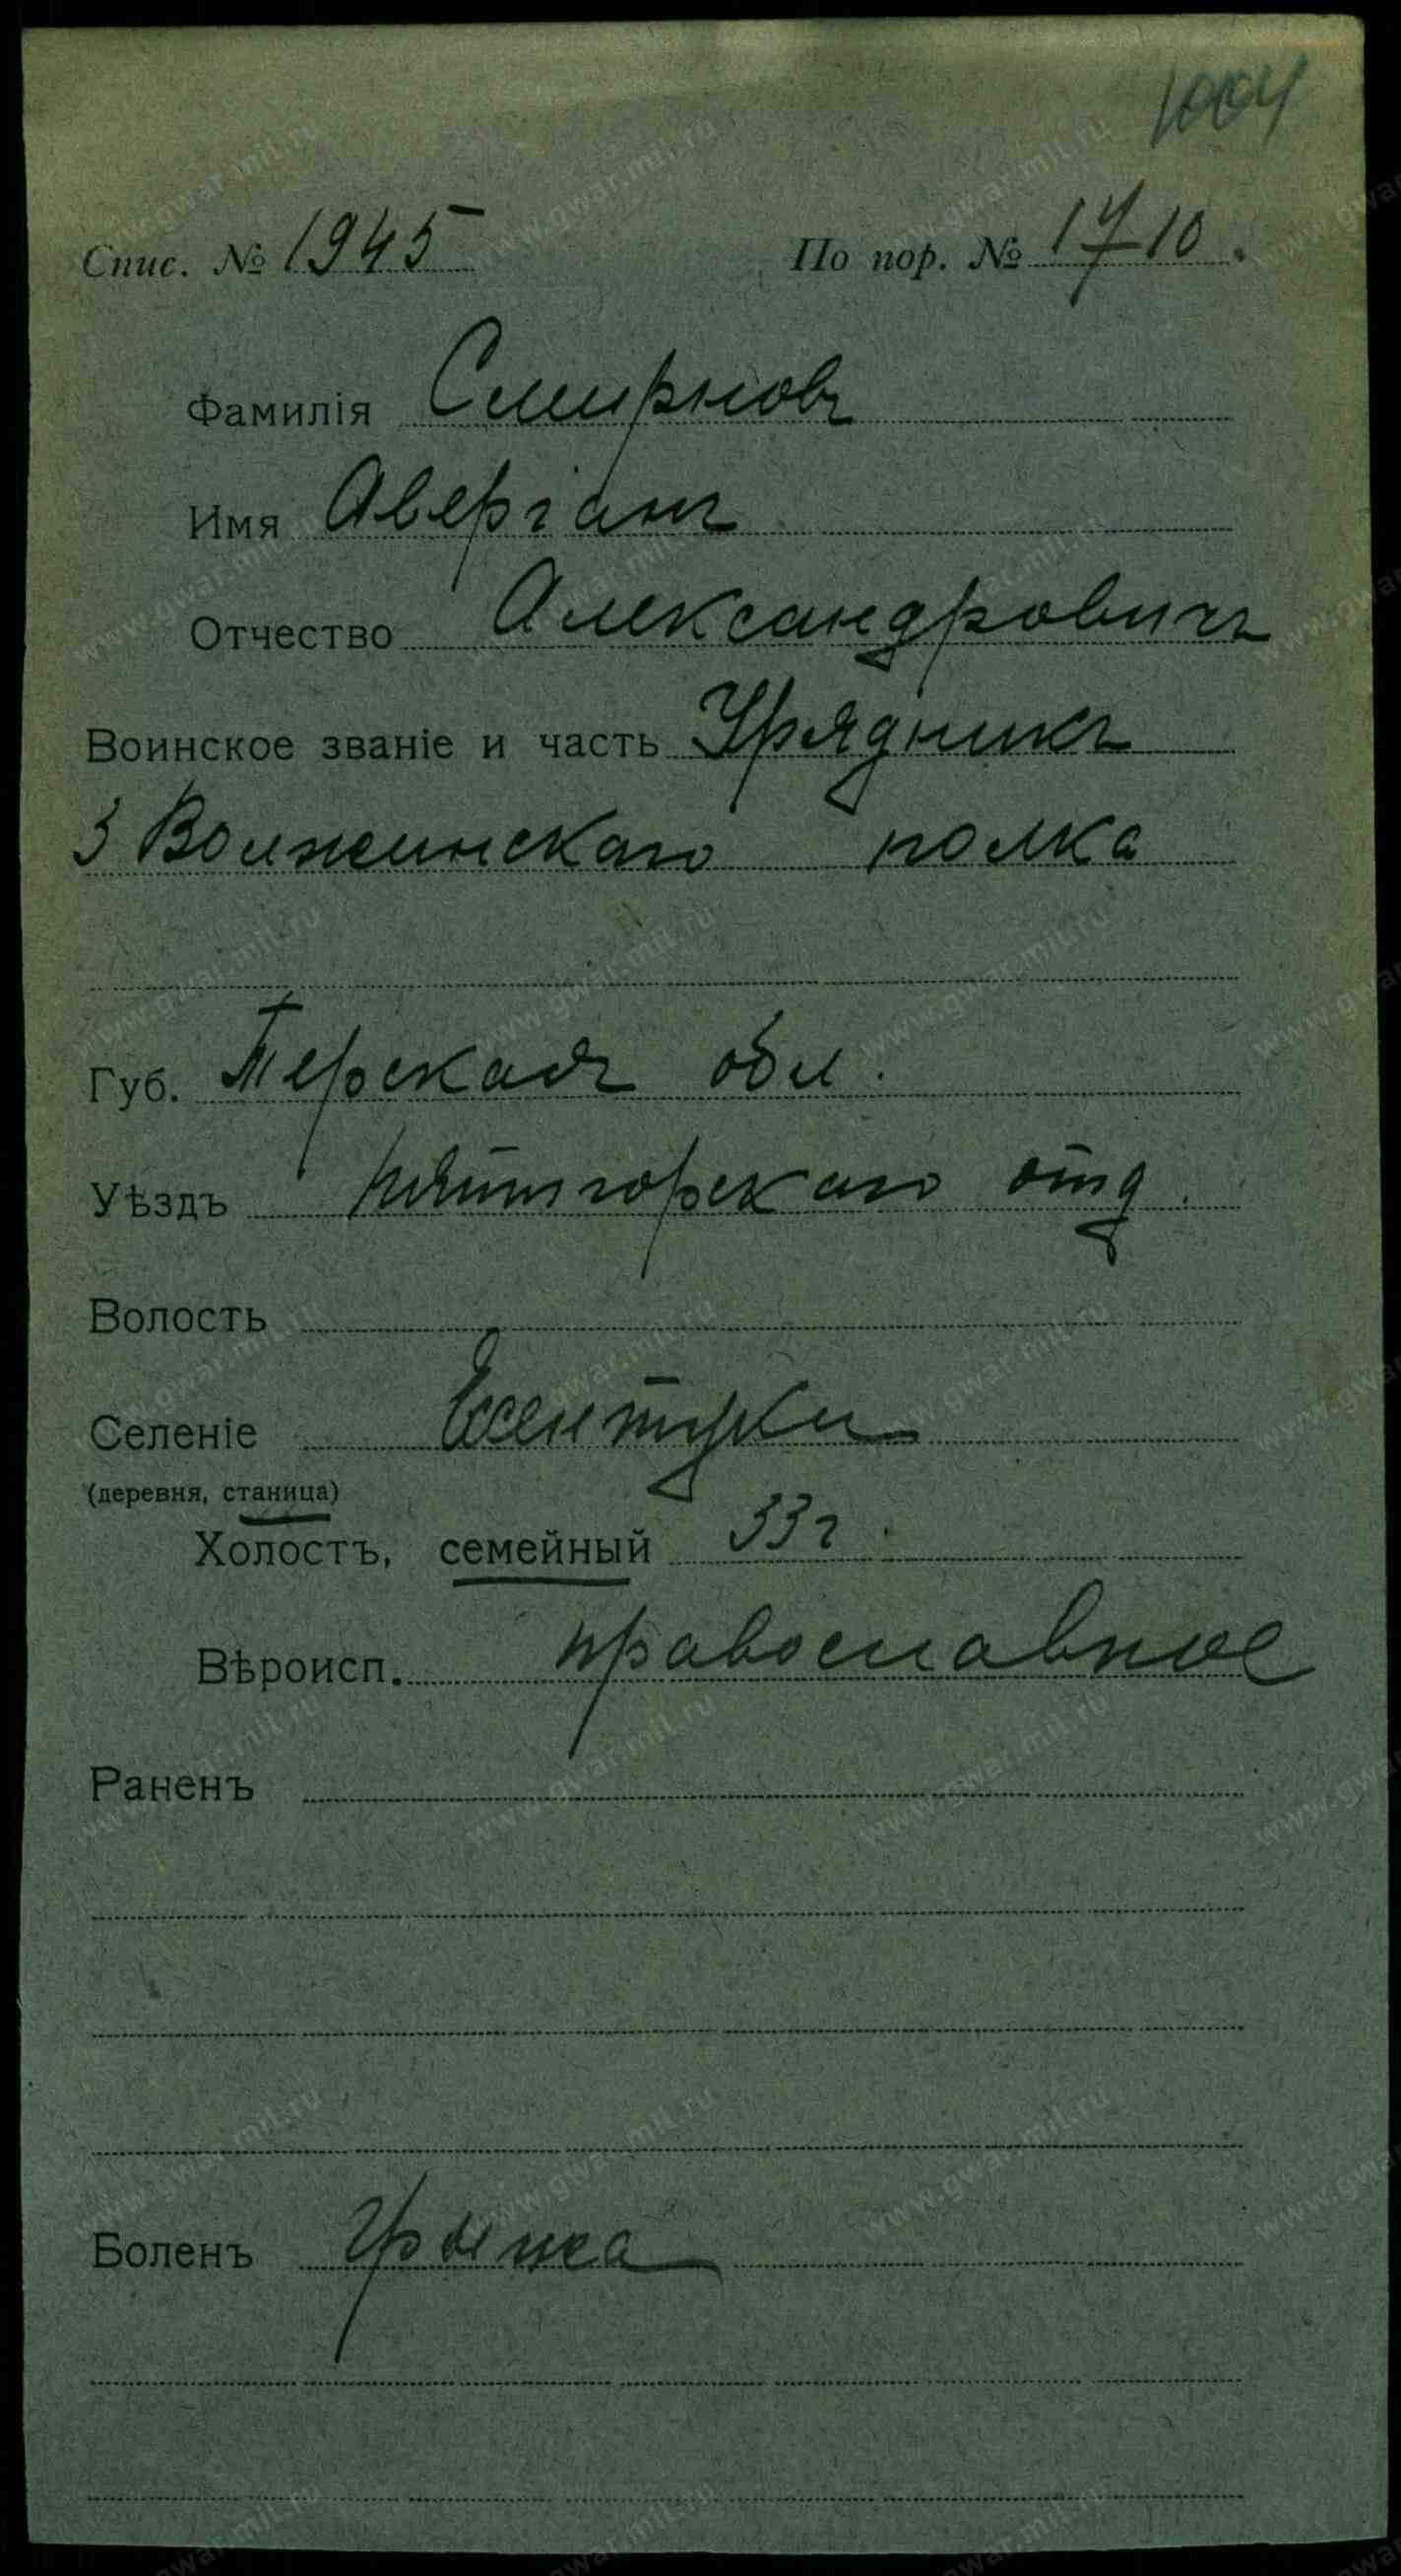 1004
Спис. № 1945 По пор. № 1710.
Фамилія Смирновъ
Имя Аверіанъ
Отчество Александровичъ
Воинское званіе и часть Урядникъ
3 Волжинскаго полка
Губ. Терская обл.
Уѣздъ пятигорскаго отд.
Волость
Селеніе Ессентуки
(деревня, станица)
Холостъ, семейный 33 г.
Вѣроисп. православное
Раненъ
Боленъ Грыжа
www.gwar.mil.ru